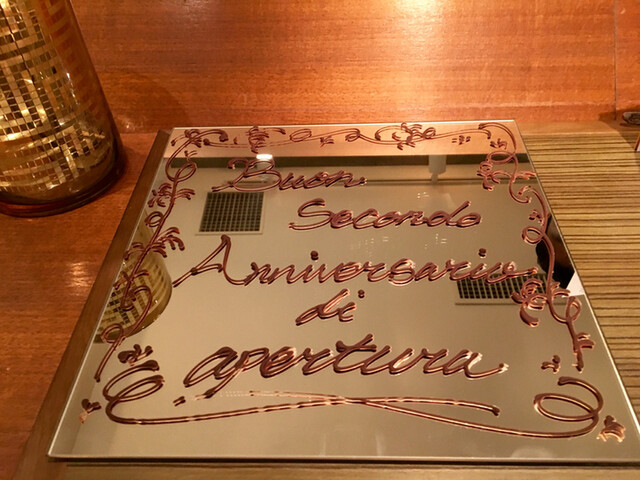 Buon
Secondo
Anniversario
di
apertura